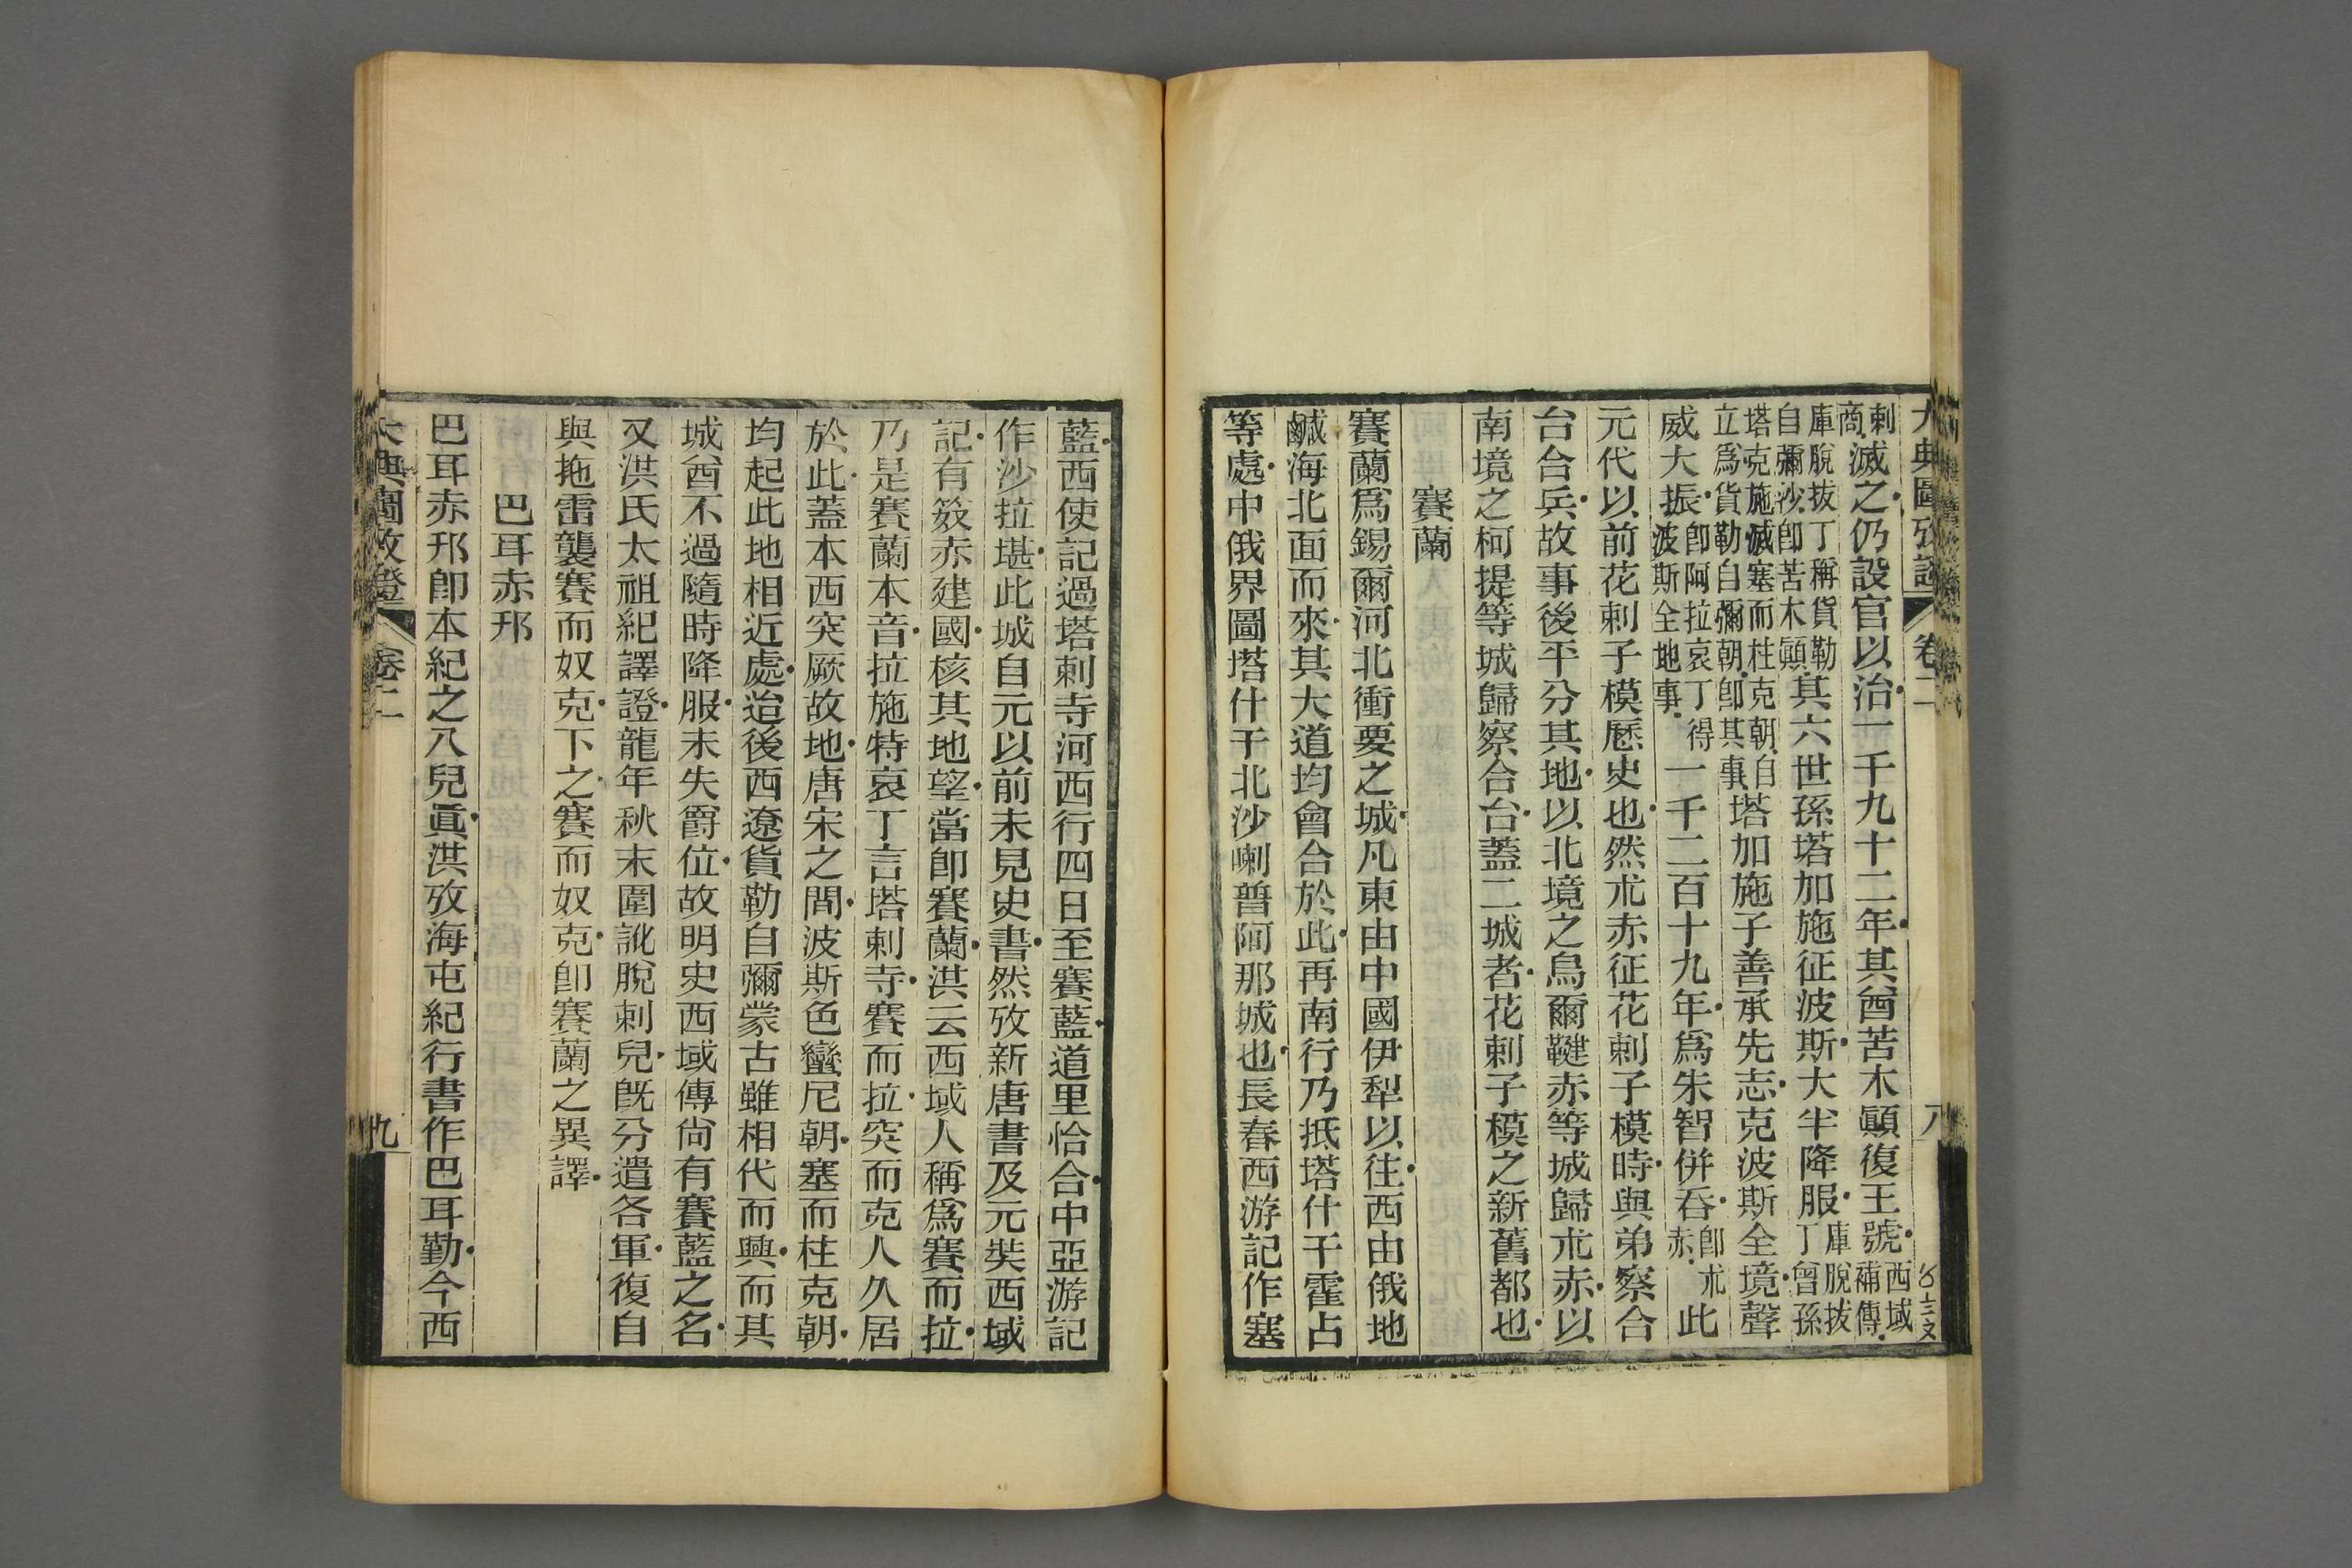 大典圖攷證 卷二 八
剌商滅之仍設官以治一千九十二年其酋苦木顚復王號西域補傳
庫脫拔丁稱貨勒自彌沙卽苦木顚其六世孫塔加施征波斯大半降服庫脫拔丁曾孫
塔克施滅塞而柱克朝自立爲貨勒自彌朝卽其事塔加施子善承先志克波斯全境聲
威大振卽阿拉哀丁得波斯全地事一千二百十九年爲朱智併吞卽朮赤此
元代以前花剌子模歷史也然朮赤征花剌子模時與弟察合
台合兵故事後平分其地以北境之烏爾鞬赤等城歸朮赤以
南境之柯提等城歸察合台蓋二城者花剌子模之新舊都也
賽蘭
賽蘭爲錫爾河北衝要之城凡東由中國伊犁以往西由俄地
鹹海北面而來其大道均會合於此再南行乃抵塔什干霍占
等處中俄界圖塔什干北沙喇普阿那城也長春西游記作塞
藍西使記過塔剌寺河西行四日至賽藍道里恰合中亞游記
作沙拉堪此城自元以前未見史書然攷新唐書及元奘西域
記有笯赤建國核其地望當卽賽蘭洪云西域人稱爲賽而拉
乃是賽蘭本音拉施特哀丁言塔剌寺賽而拉突而克人久居
於此蓋本西突厥故地唐宋之間波斯色蠻尼朝塞而柱克朝
均起此地相近處迨後西遼貨勒自彌蒙古雖相代而興而其
城酋不過隨時降服未失爵位故明史西域傳尙有賽藍之名
又洪氏太祖紀譯證龍年秋末圍訛脫剌兒旣分遣各軍復自
與拖雷襲賽而奴克下之賽而奴克卽賽蘭之異譯
巴耳赤邗
巴耳赤邗卽本紀之八兒眞洪攷海屯紀行書作巴耳勤今西
大典圖攷證 卷二 九